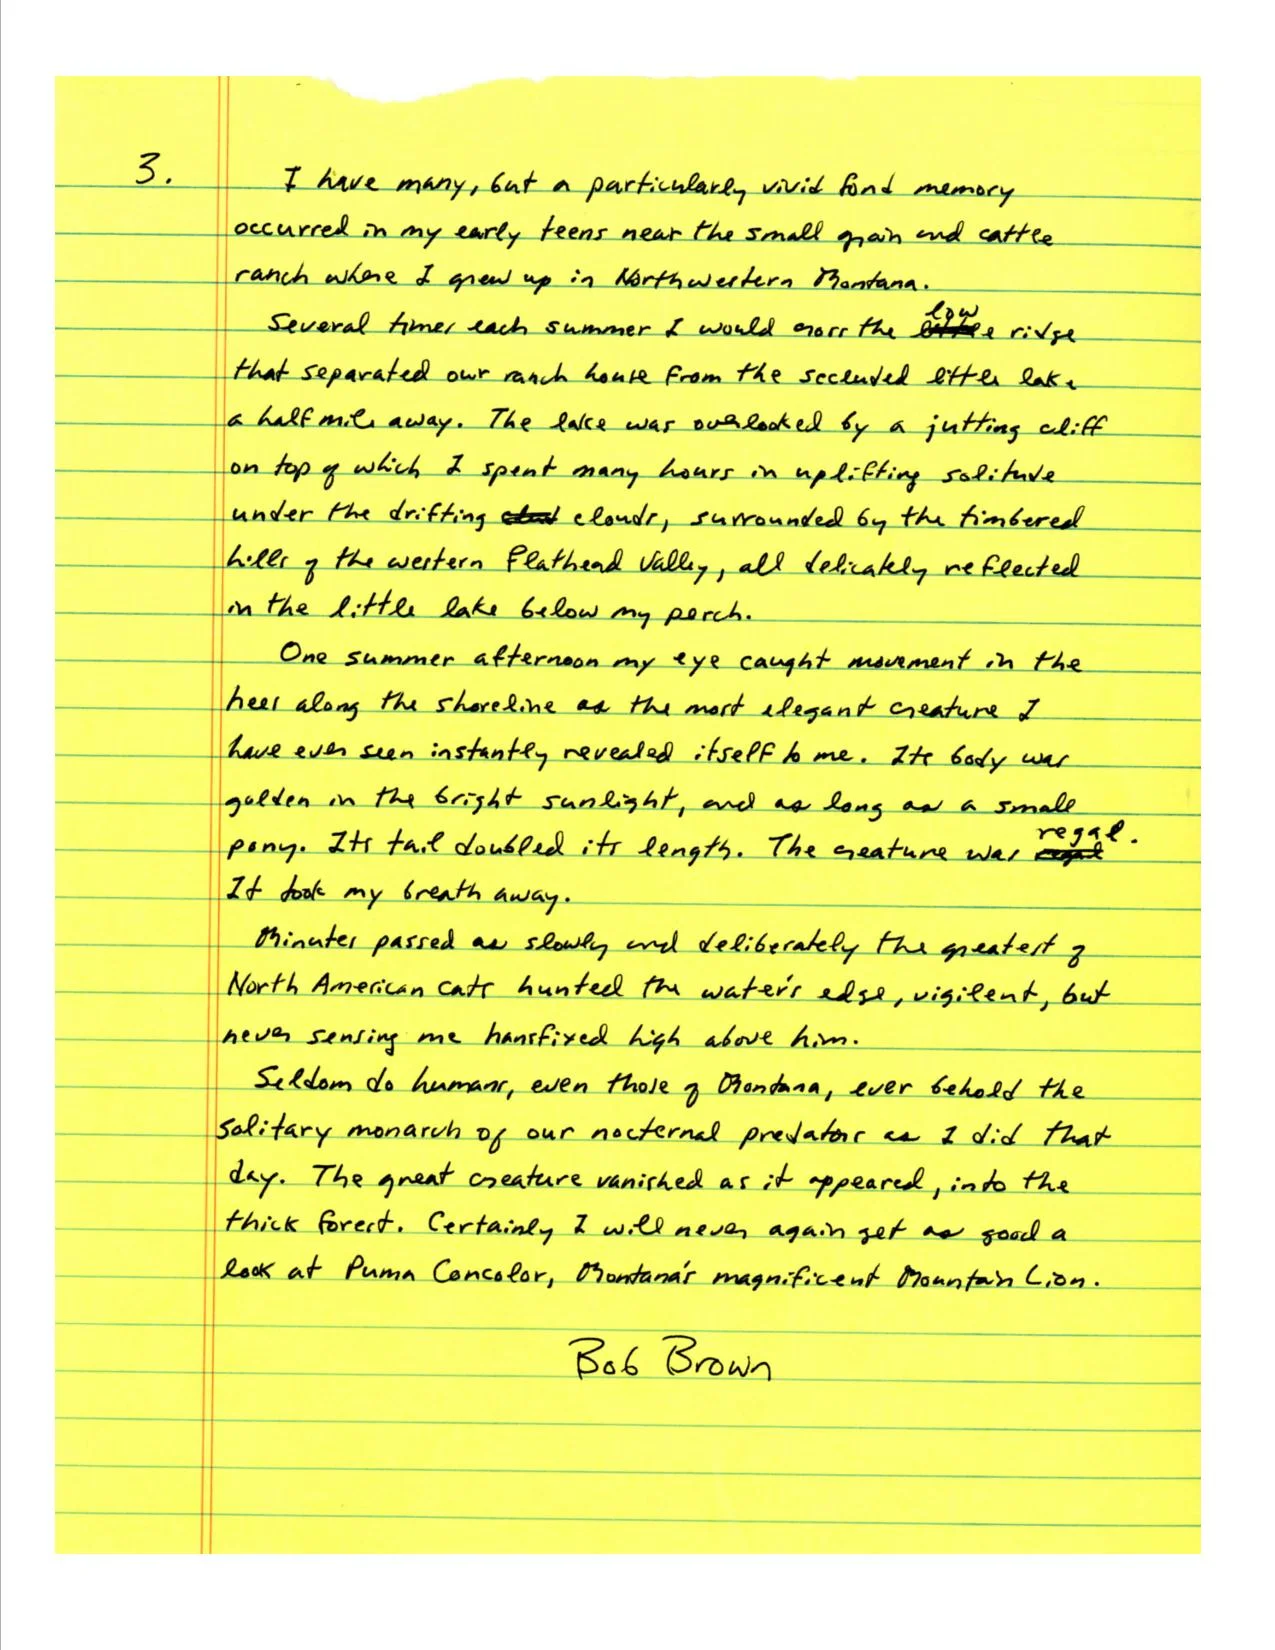 3. I have many, but a particularly vivid fond memory
occurred in my early teens near the small grain and cattle
ranch where I grew up in Northwestern Montana.
Several times each summer I would cross the low ridge
that separated our ranch house from the secluded little lake
a half mile away. The lake was overlooked by a jutting cliff
on top of which I spent many hours in uplifting solitude
under the drifting clouds, surrounded by the timbered
hills of the western Flathead Valley, all delicately reflected
in the little lake below my perch.
One summer afternoon my eye caught movement in the
trees along the shoreline as the most elegant creature I
have ever seen instantly revealed itself to me. Its body was
golden in the bright sunlight, and as long as a small
pony. Its tail doubled its length. The creature was regal.
It took my breath away.
Minutes passed as slowly and deliberately the greatest of
North American cats hunted the water's edge, vigilent, but
never sensing me transfixed high above him.
Seldom do humans, even those of Montana, ever behold the
solitary monarch of our nocternal predators as I did that
day. The great creature vanished as it appeared, into the
thick forest. Certainly I will never again get as good a
look at Puma Concolor, Montana's magnificent Mountain Lion.
Bob Brown